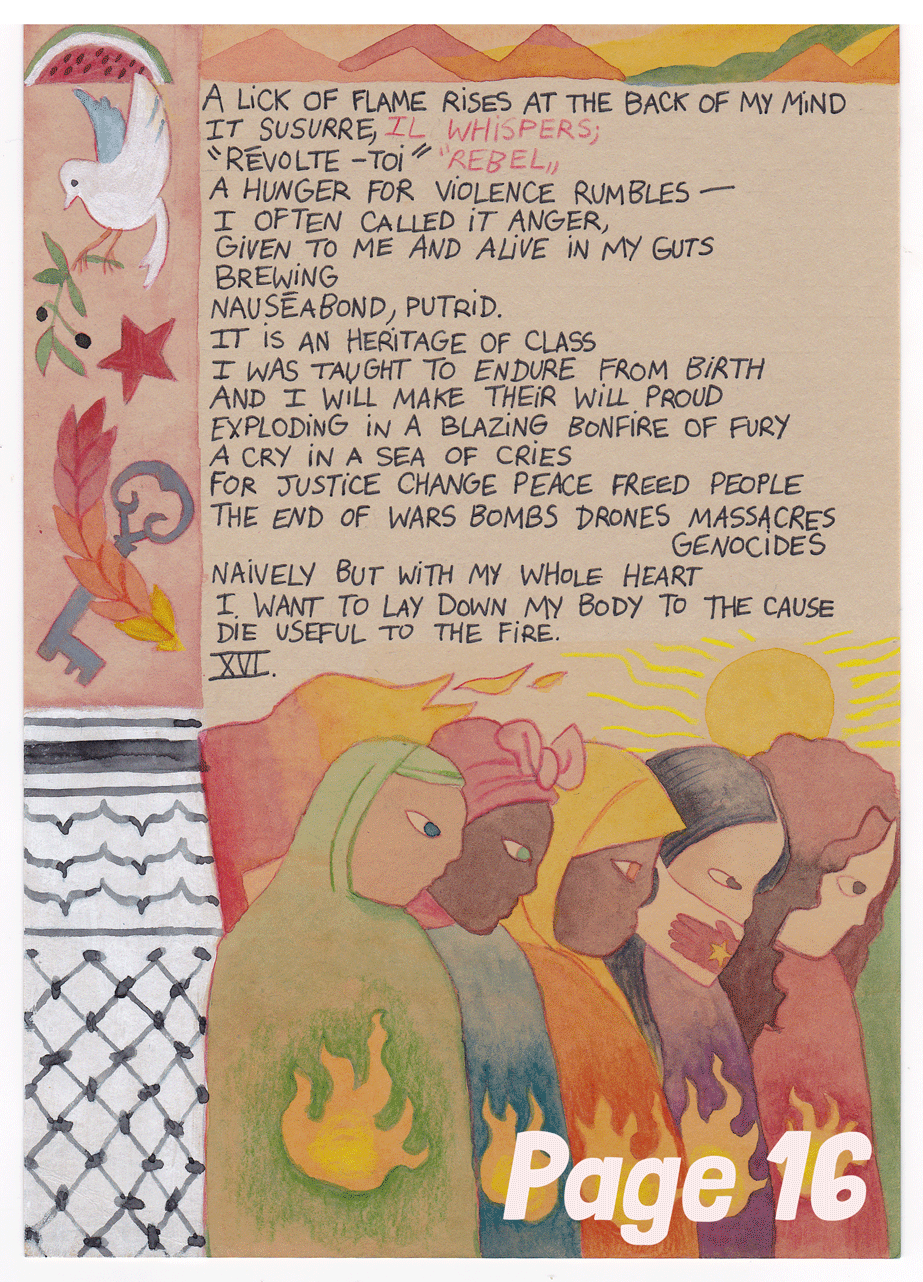 A LICK OF FLAME RISES AT THE BACK OF MY MIND
IT SUSURRE, IL WHISPERS;
"RÉVOLTE-TOI" "REBEL„
A HUNGER FOR VIOLENCE RUMBLES —
I OFTEN CALLED IT ANGER,
GIVEN TO ME AND ALIVE IN MY GUTS
BREWING
NAUSÉABOND, PUTRID.
IT IS AN HERITAGE OF CLASS
I WAS TAUGHT TO ENDURE FROM BIRTH
AND I WILL MAKE THEIR WILL PROUD
EXPLODING IN A BLAZING BONFIRE OF FURY
A CRY IN A SEA OF CRIES
FOR JUSTICE CHANGE PEACE FREED PEOPLE
THE END OF WARS BOMBS DRONES MASSACRES
GENOCIDES
NAIVELY BUT WITH MY WHOLE HEART
I WANT TO LAY DOWN MY BODY TO THE CAUSE
DIE USEFUL TO THE FIRE.
XVI.
Page 16